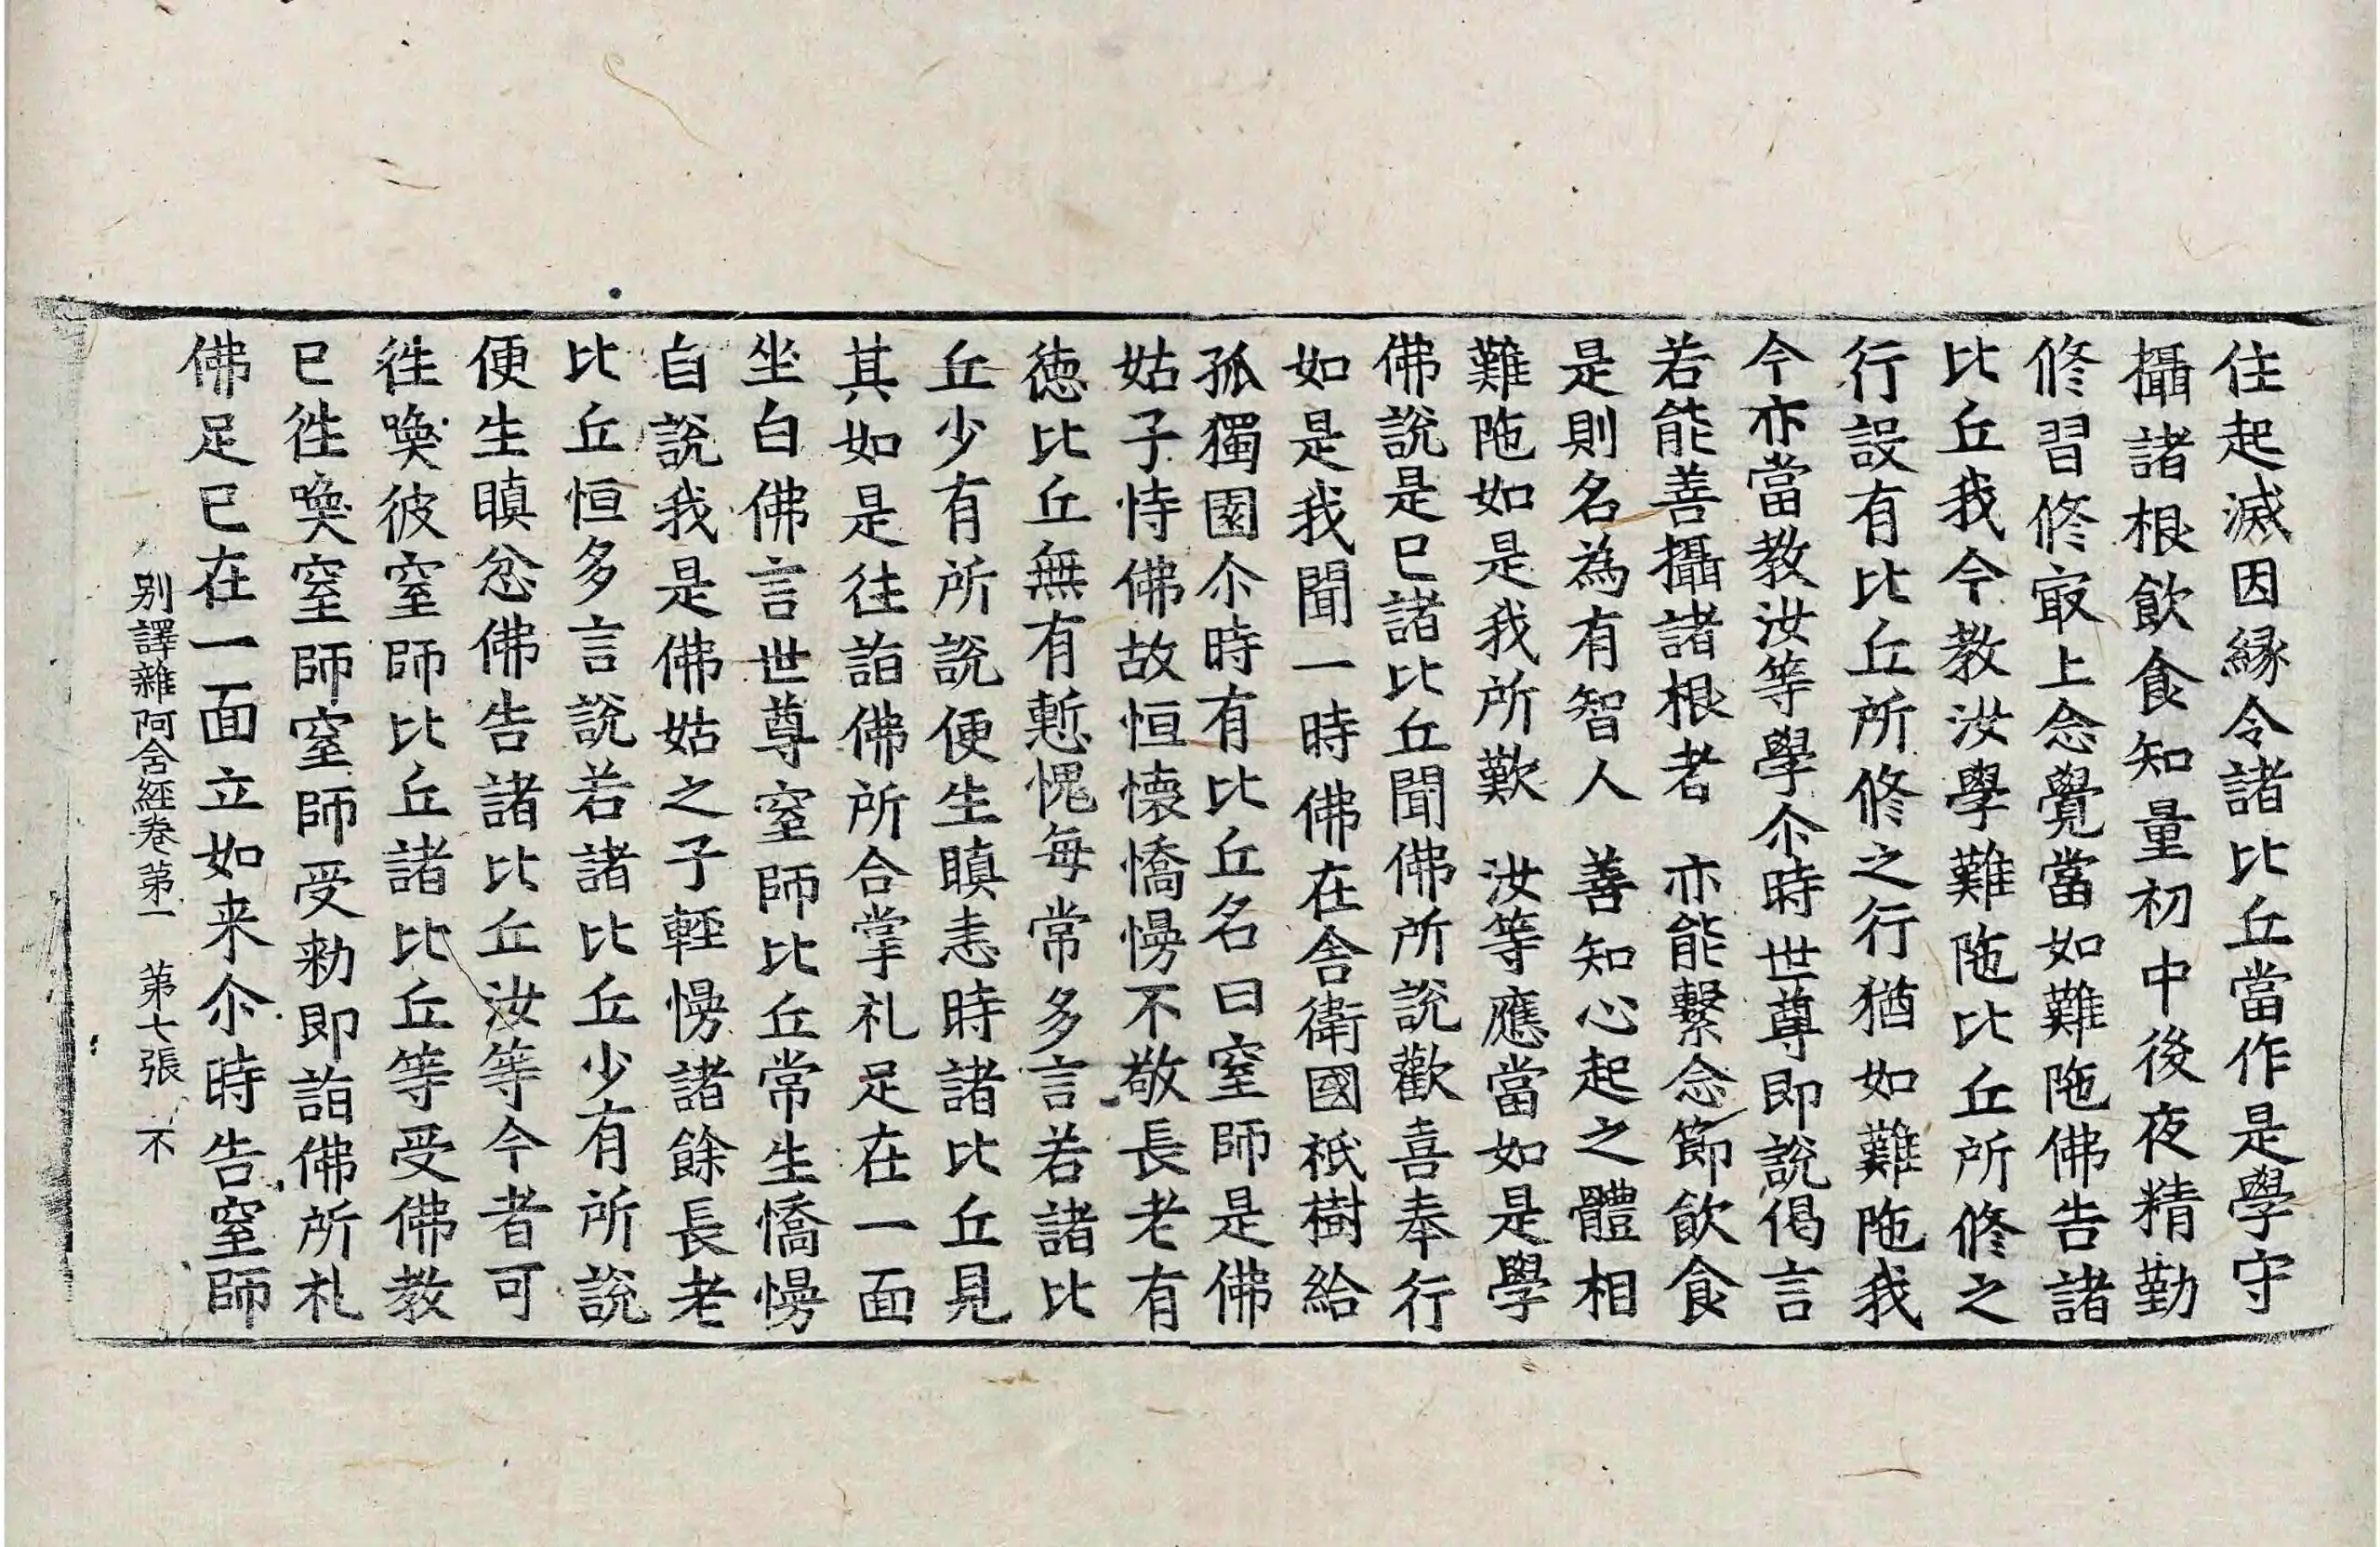 住起滅因縁令諸比丘當作是學守
攝諸根飲食知量初中後夜精勤
修習修㝡上念覺當如難陁佛告諸
比丘我今教汝學難陁比丘所修之
行設有比丘所修之行猶如難陁我
今亦當教汝等學尒時世尊即說偈言
若能善攝諸根者　亦能繫念節飲食
是則名為有智人　善知心起之體相
難陁如是我所歎　汝等應當如是學
佛說是已諸比丘聞佛所說歡喜奉行
如是我聞一時佛在舍衛國祇樹給
孤獨園尒時有比丘名曰窒師是佛
姑子恃佛故恒懐憍慢不敬長老有
徳比丘無有慙愧每常多言若諸比
丘少有所說便生瞋恚時諸比丘見
其如是往詣佛所合掌礼足在一面
坐白佛言世尊窒師比丘常生憍慢
自說我是佛姑之子輕慢諸餘長老
比丘恒多言說若諸比丘少有所說
便生瞋忿佛告諸比丘汝等今者可
徃喚彼窒師比丘諸比丘等受佛教
已徃喚窒師窒師受勑即詣佛所礼
佛足已在一面立如来尒時告窒師
别譯雜阿含經卷第一　第七張　不